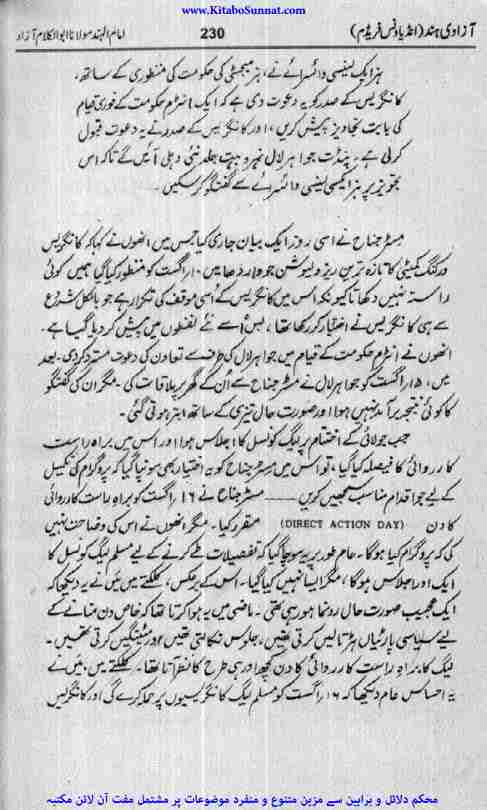 www.KitaboSunnat.com
آزادی ہند (انڈیا ونس فریڈم) 230 امام الہند مولانا ابوالکلام آزاد
ہز ایکسیلنسی وائسرائے نے، ہز میجسٹی کی حکومت کی منظوری کے ساتھ،
کانگریس کے صدر کو یہ دعوت دی ہے کہ ایک انٹرم حکومت کے فوری قیام
کی بابت تجاویز پیش کریں، اور کانگریس کے صدر نے یہ دعوت قبول
کرلی ہے۔ پنڈت جواہر لال نہرو بہت جلد نئی دہلی آئیں گے تاکہ اس
تجویز پر ہز ایکسی لینسی وائسرائے سے گفتگو کرسکیں۔
مسٹر جناح نے اسی روز ایک بیان جاری کیا جس میں انھوں نے کہا کہ کانگریس
ورکنگ کمیٹی کا تازہ ترین ریزولیوشن جو واردھا میں ۱۰ اگست کو منظور کیا گیا ہمیں کوئی
راستہ نہیں دکھاتا کیونکہ اس میں کانگریس کے اُسی موقف کی تکرار ہے جو بالکل شروع
سے ہی کانگریس نے اختیار کر رکھا تھا، بس اُسے نئے لفظوں میں پیش کردیا گیا ہے۔
انھوں نے انٹرم حکومت کے قیام میں جواہر لال کی طرف سے تعاون کی دعوت مسترد کردی۔ بعد
میں، ۱۵ اگست کو جواہر لال نے مسٹر جناح سے اُن کے گھر پر ملاقات کی۔ مگر ان کی گفتگو
کا کوئی نتیجہ برآمد نہیں ہوا اور صورت حال تیزی کے ساتھ ابتر ہوتی گئی۔
جب جولائی کے اختتام پر لیگ کونسل کا اجلاس ہوا اور اس میں براہ راست
کارروائی کا فیصلہ کیا گیا، تو اس میں مسٹر جناح کو یہ اختیار بھی سونپا گیا کہ پروگرام کی تکمیل
کے لیے جو اقدام مناسب سمجھیں کریں ـــــ مسٹر جناح نے ۱۶ اگست کو براہِ راست کارروائی
کا دن (DIRECT ACTION DAY) مقرر کیا۔ مگر انھوں نے اس کی وضاحت نہیں
کی کہ پروگرام کیا ہوگا۔ عام طور پر یہ سوچا گیا کہ تفصیلات طے کرنے کے لیے مسلم لیگ کونسل کا
ایک اور اجلاس ہوگا، مگر ایسا نہیں کیا گیا۔ اس کے برعکس، کلکتے میں میں نے یہ دیکھا کہ
ایک عجیب صورت حال رونما ہورہی تھی۔ ماضی میں یہ ہوا کرتا تھا کہ خاص دن منانے کے
لیے سیاسی پارٹیاں ہڑتالیں کرتی تھیں، جلوس نکالتی تھیں اور میٹنگیں کرتی تھیں۔
لیگ کا براہِ راست کارروائی کا دن کچھ اور ہی طرح کا نظر آتا تھا۔ کلکتے میں، میں نے
یہ احساس عام دیکھا کہ ۱۶ اگست کو مسلم لیگ کانگریسیوں پر حملہ کرے گی اور کانگریس
محکم دلائل و براہین سے مزین متنوع و منفرد موضوعات پر مشتمل مفت آن لائن مکتبہ